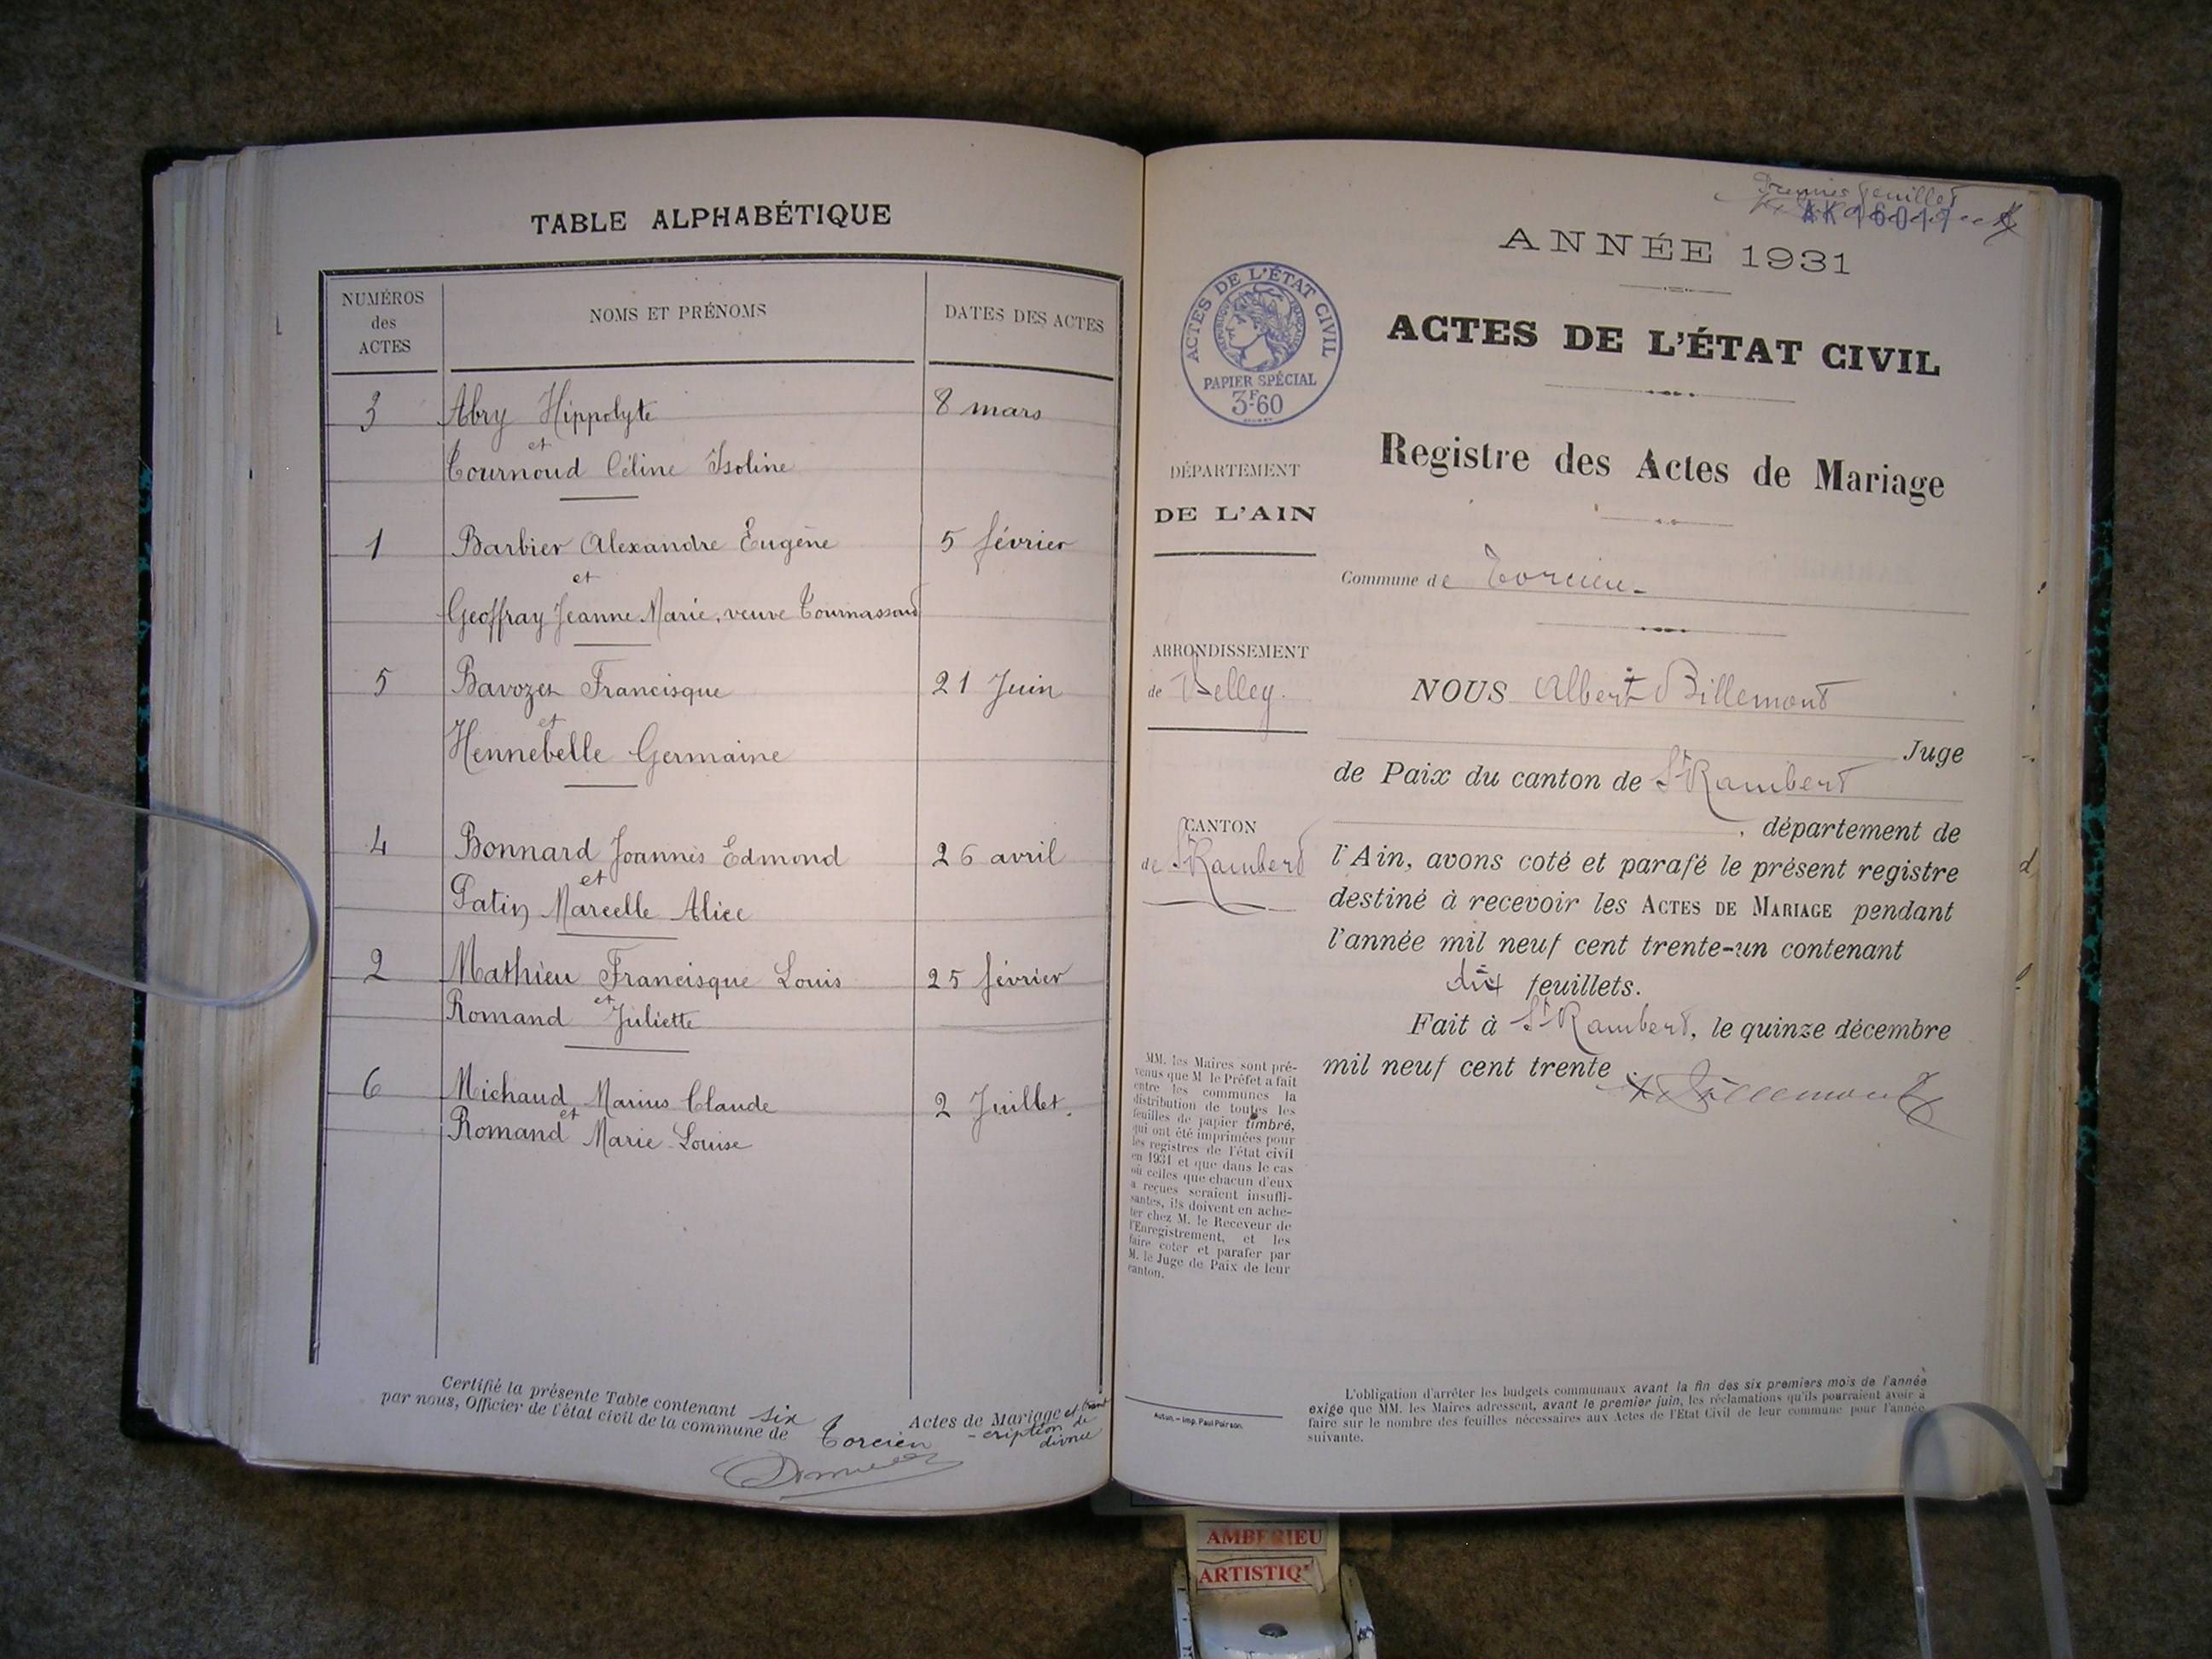 TABLE ALPHABÉTIQUE
NUMÉROS
des
ACTES
NOMS ET PRÉNOMS
DATES DES ACTES
3 Abry Hippolyte 8 mars
et
Tournoud Céline Isoline
1 Barbier Alexandre Eugène 5 février
et
Geoffray Jeanne Marie, veuve Tournassoud
5 Bavozet Francisque 21 Juin
et
Hennebelle Germaine
4 Bonnard Joannès Edmond 26 avril
et
Patin Marcelle Alice
2 Mathieu Francisque Louis 25 février
et
Romand Juliette
6 Michaud Marius Claude 2 Juillet.
et
Romand Marie-Louise
Certifié la présente Table contenant six Actes de Mariage et trans
-cription de divorce
par nous, Officier de l'état civil de la commune de Torcieu
Premier feuillet
AK 16011
ANNÉE 1931
ACTES DE L'ÉTAT CIVIL
RÉPUBLIQUE FRANÇAISE
PAPIER SPÉCIAL
3F60
ACTES DE L'ÉTAT CIVIL
Registre des Actes de Mariage
DÉPARTEMENT
DE L'AIN
Commune de Torcieu-
ARRONDISSEMENT
de Belley.
CANTON
de St Rambert
NOUS Albert Billemont
Juge
de Paix du canton de St Rambert
, département de
l'Ain, avons coté et parafé le présent registre
destiné à recevoir les ACTES DE MARIAGE pendant
l'année mil neuf cent trente-un contenant
dix feuillets.
Fait à St Rambert, le quinze décembre
mil neuf cent trente.
ABillemont
MM. les Maires sont pré-
venus que M le Préfet a fait
entre les communes la
distribution de toutes les
feuilles de papier timbré,
qui ont été imprimées pour
les registres de l'état civil
en 1931 et que dans le cas
où celles que chacun d'eux
a reçues seraient insuffi-
santes, ils doivent en ache-
ter chez M. le Receveur de
l'Enregistrement, et les
faire coter et parafer par
M. le Juge de Paix de leur
canton.
Autun. – Imp. Paul Poirson.
L'obligation d'arrêter les budgets communaux avant la fin des six premiers mois de l'année
exige que MM. les Maires adressent, avant le premier juin, les réclamations qu'ils pourraient avoir à
faire sur le nombre des feuilles nécessaires aux Actes de l'Etat Civil de leur commune pour l'année
suivante.
AMBERIEU
ARTISTIQ